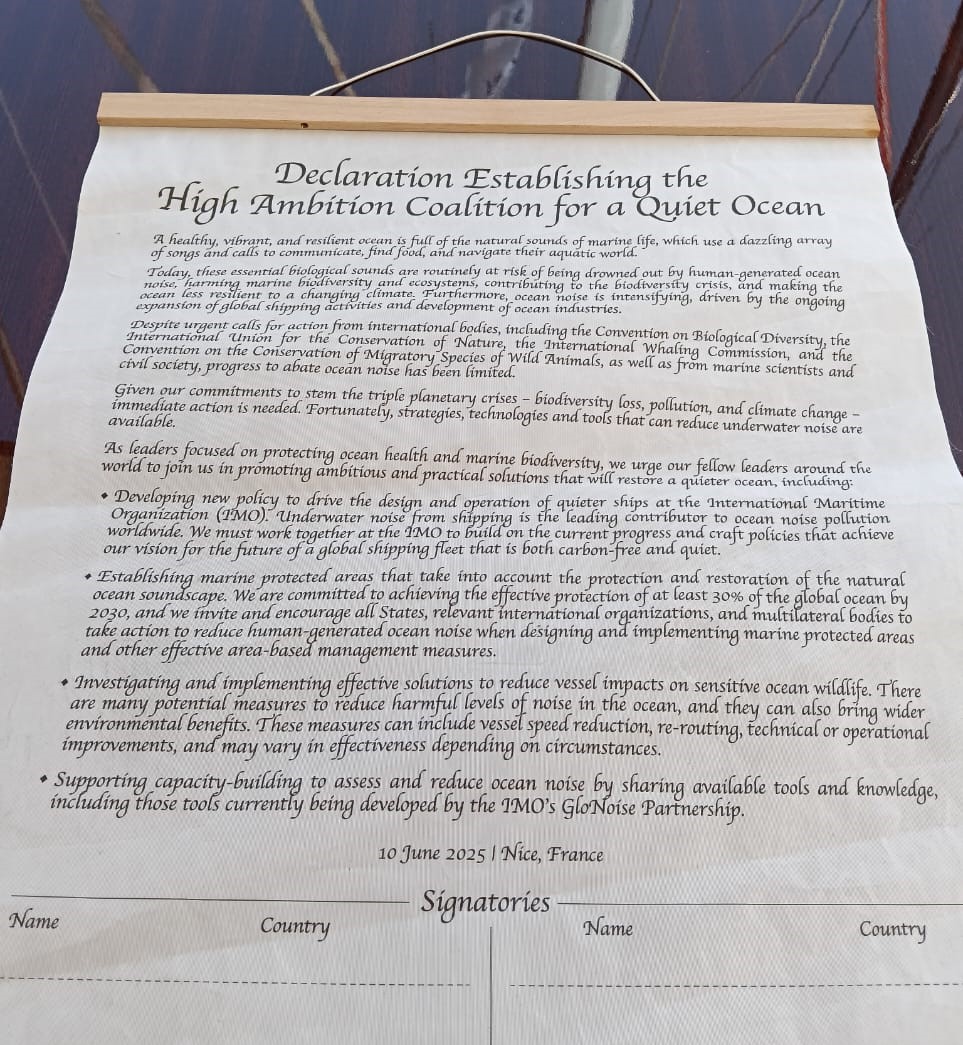 Declaration Establishing the
High Ambition Coalition for a Quiet Ocean
A healthy, vibrant, and resilient ocean is full of the natural sounds of marine life, which use a dazzling array
of songs and calls to communicate, find food, and navigate their aquatic world.
Today, these essential biological sounds are routinely at risk of being drowned out by human-generated ocean
noise, harming marine biodiversity and ecosystems, contributing to the biodiversity crisis, and making the
ocean less resilient to a changing climate. Furthermore, ocean noise is intensifying, driven by the ongoing
expansion of global shipping activities and development of ocean industries.
Despite urgent calls for action from international bodies, including the Convention on Biological Diversity, the
International Union for the Conservation of Nature, the International Whaling Commission, and the
Convention on the Conservation of Migratory Species of Wild Animals, as well as from marine scientists and
civil society, progress to abate ocean noise has been limited.
Given our commitments to stem the triple planetary crises – biodiversity loss, pollution, and climate change –
immediate action is needed. Fortunately, strategies, technologies and tools that can reduce underwater noise are
available.
As leaders focused on protecting ocean health and marine biodiversity, we urge our fellow leaders around the
world to join us in promoting ambitious and practical solutions that will restore a quieter ocean, including:
• Developing new policy to drive the design and operation of quieter ships at the International Maritime
Organization (IMO). Underwater noise from shipping is the leading contributor to ocean noise pollution
worldwide. We must work together at the IMO to build on the current progress and craft policies that achieve
our vision for the future of a global shipping fleet that is both carbon-free and quiet.
• Establishing marine protected areas that take into account the protection and restoration of the natural
ocean soundscape. We are committed to achieving the effective protection of at least 30% of the global ocean by
2030, and we invite and encourage all States, relevant international organizations, and multilateral bodies to
take action to reduce human-generated ocean noise when designing and implementing marine protected areas
and other effective area-based management measures.
• Investigating and implementing effective solutions to reduce vessel impacts on sensitive ocean wildlife. There
are many potential measures to reduce harmful levels of noise in the ocean, and they can also bring wider
environmental benefits. These measures can include vessel speed reduction, re-routing, technical or operational
improvements, and may vary in effectiveness depending on circumstances.
• Supporting capacity-building to assess and reduce ocean noise by sharing available tools and knowledge,
including those tools currently being developed by the IMO's GloNoise Partnership.
10 June 2025 | Nice, France
Signatories
Name Country Name Country